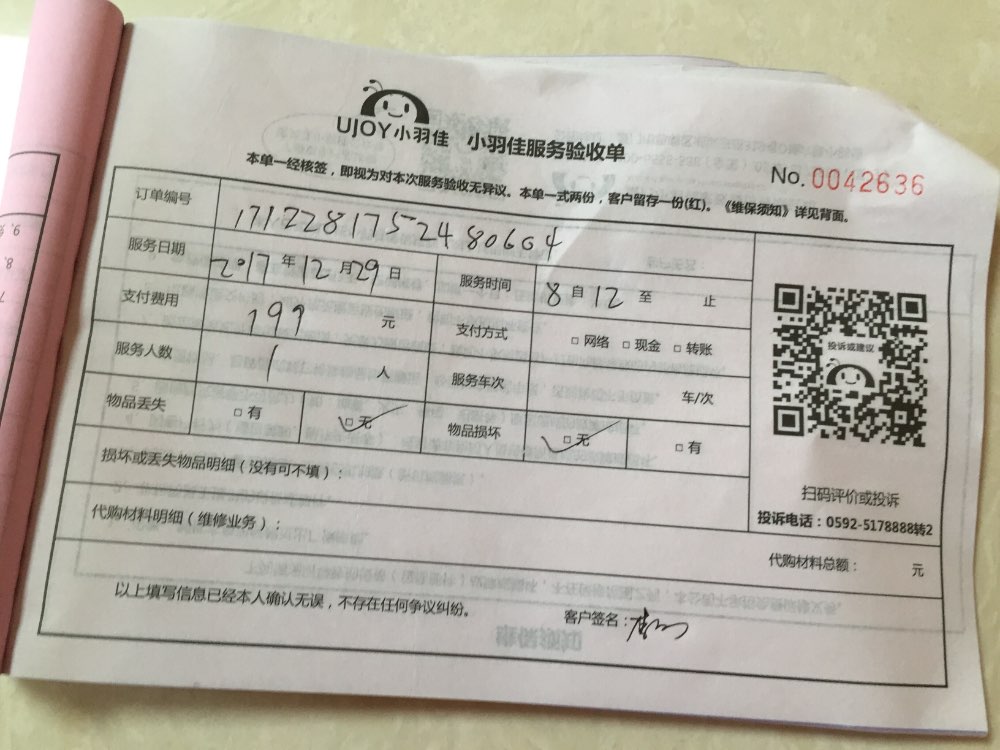 UJOY小羽佳 小羽佳服务验收单
No. 0042636
本单一经核签，即视为对本次服务验收无异议。本单一式两份，客户留存一份(红)。《维保须知》详见背面。
订单编号 1712281752480604
服务日期 2017年12月29日 服务时间 8自12至 止
支付费用 199元 支付方式 □网络 □现金 □转账
服务人数 1人 服务车次 车/次
物品丢失 □有 □无 物品损坏 □无 □有
投诉或建议
扫码评价或投诉
投诉电话：0592-5178888转2
损坏或丢失物品明细（没有可不填）：
代购材料明细（维修业务）：
代购材料总额： 元
以上填写信息已经本人确认无误，不存在任何争议纠纷。 客户签名：